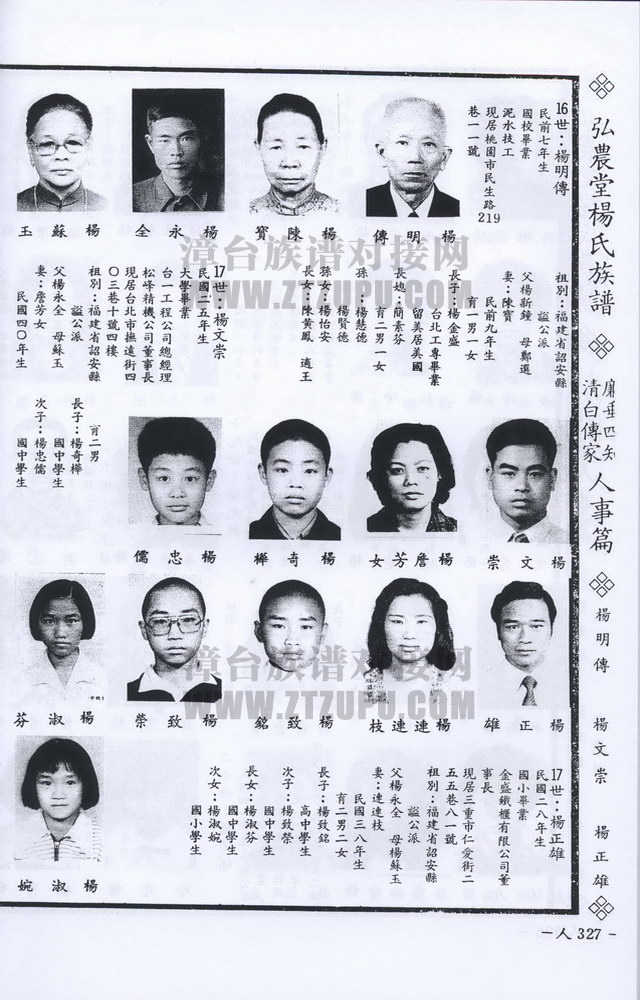 弘農堂楊氏族譜
廉垂四知
清白傳家
人事篇
楊明傳
楊文崇
楊正雄
16世：楊明傳
民前七年生
國校畢業
泥水技工
現居桃園市民生路219
巷一一號
楊明傳
楊陳寶
楊永全
楊蘇玉
祖別：福建省詔安縣
謚公派
父楊新鐘　母鄭選
妻：陳寶
民前九年生
育一男一女
長子：楊金盛
台北工專畢業
留美居美國
長媳：簡素芬
育二男一女
孫：楊慧德
楊賢德
孫女：楊怡安
長女：陳黃鳳　適王
17世：楊文崇
民國二五年生
大學畢業
台一工程公司總經理
松峰精機公司董事長
現居台北市撫遠街四
〇三巷十號四樓
祖別：福建省詔安縣
謚公派
父楊永全　母蘇玉
妻：詹芳女
民國四〇年生
楊文崇
楊詹芳女
楊奇樺
楊忠儒
育二男
長子：楊奇樺
國中學生
次子：楊忠儒
國中學生
楊正雄
楊連連枝
楊致銘
楊致榮
楊淑芬
17世：楊正雄
民國二八年生
國小畢業
金盛鐵櫃有限公司董
事長
現居三重市仁愛街二
五五巷八一號
祖別：福建省詔安縣
謚公派
父楊永全　母楊蘇玉
妻：連連枝
民國三八年生
育二男二女
長子：楊致銘
高中學生
次子：楊致榮
國中學生
長女：楊淑芬
國中學生
次女：楊淑婉
國小學生
楊淑婉
－人327－
漳台族谱对接网
WWW.ZTZUPU.COM
漳台族谱对接网
WWW.ZTZUPU.COM